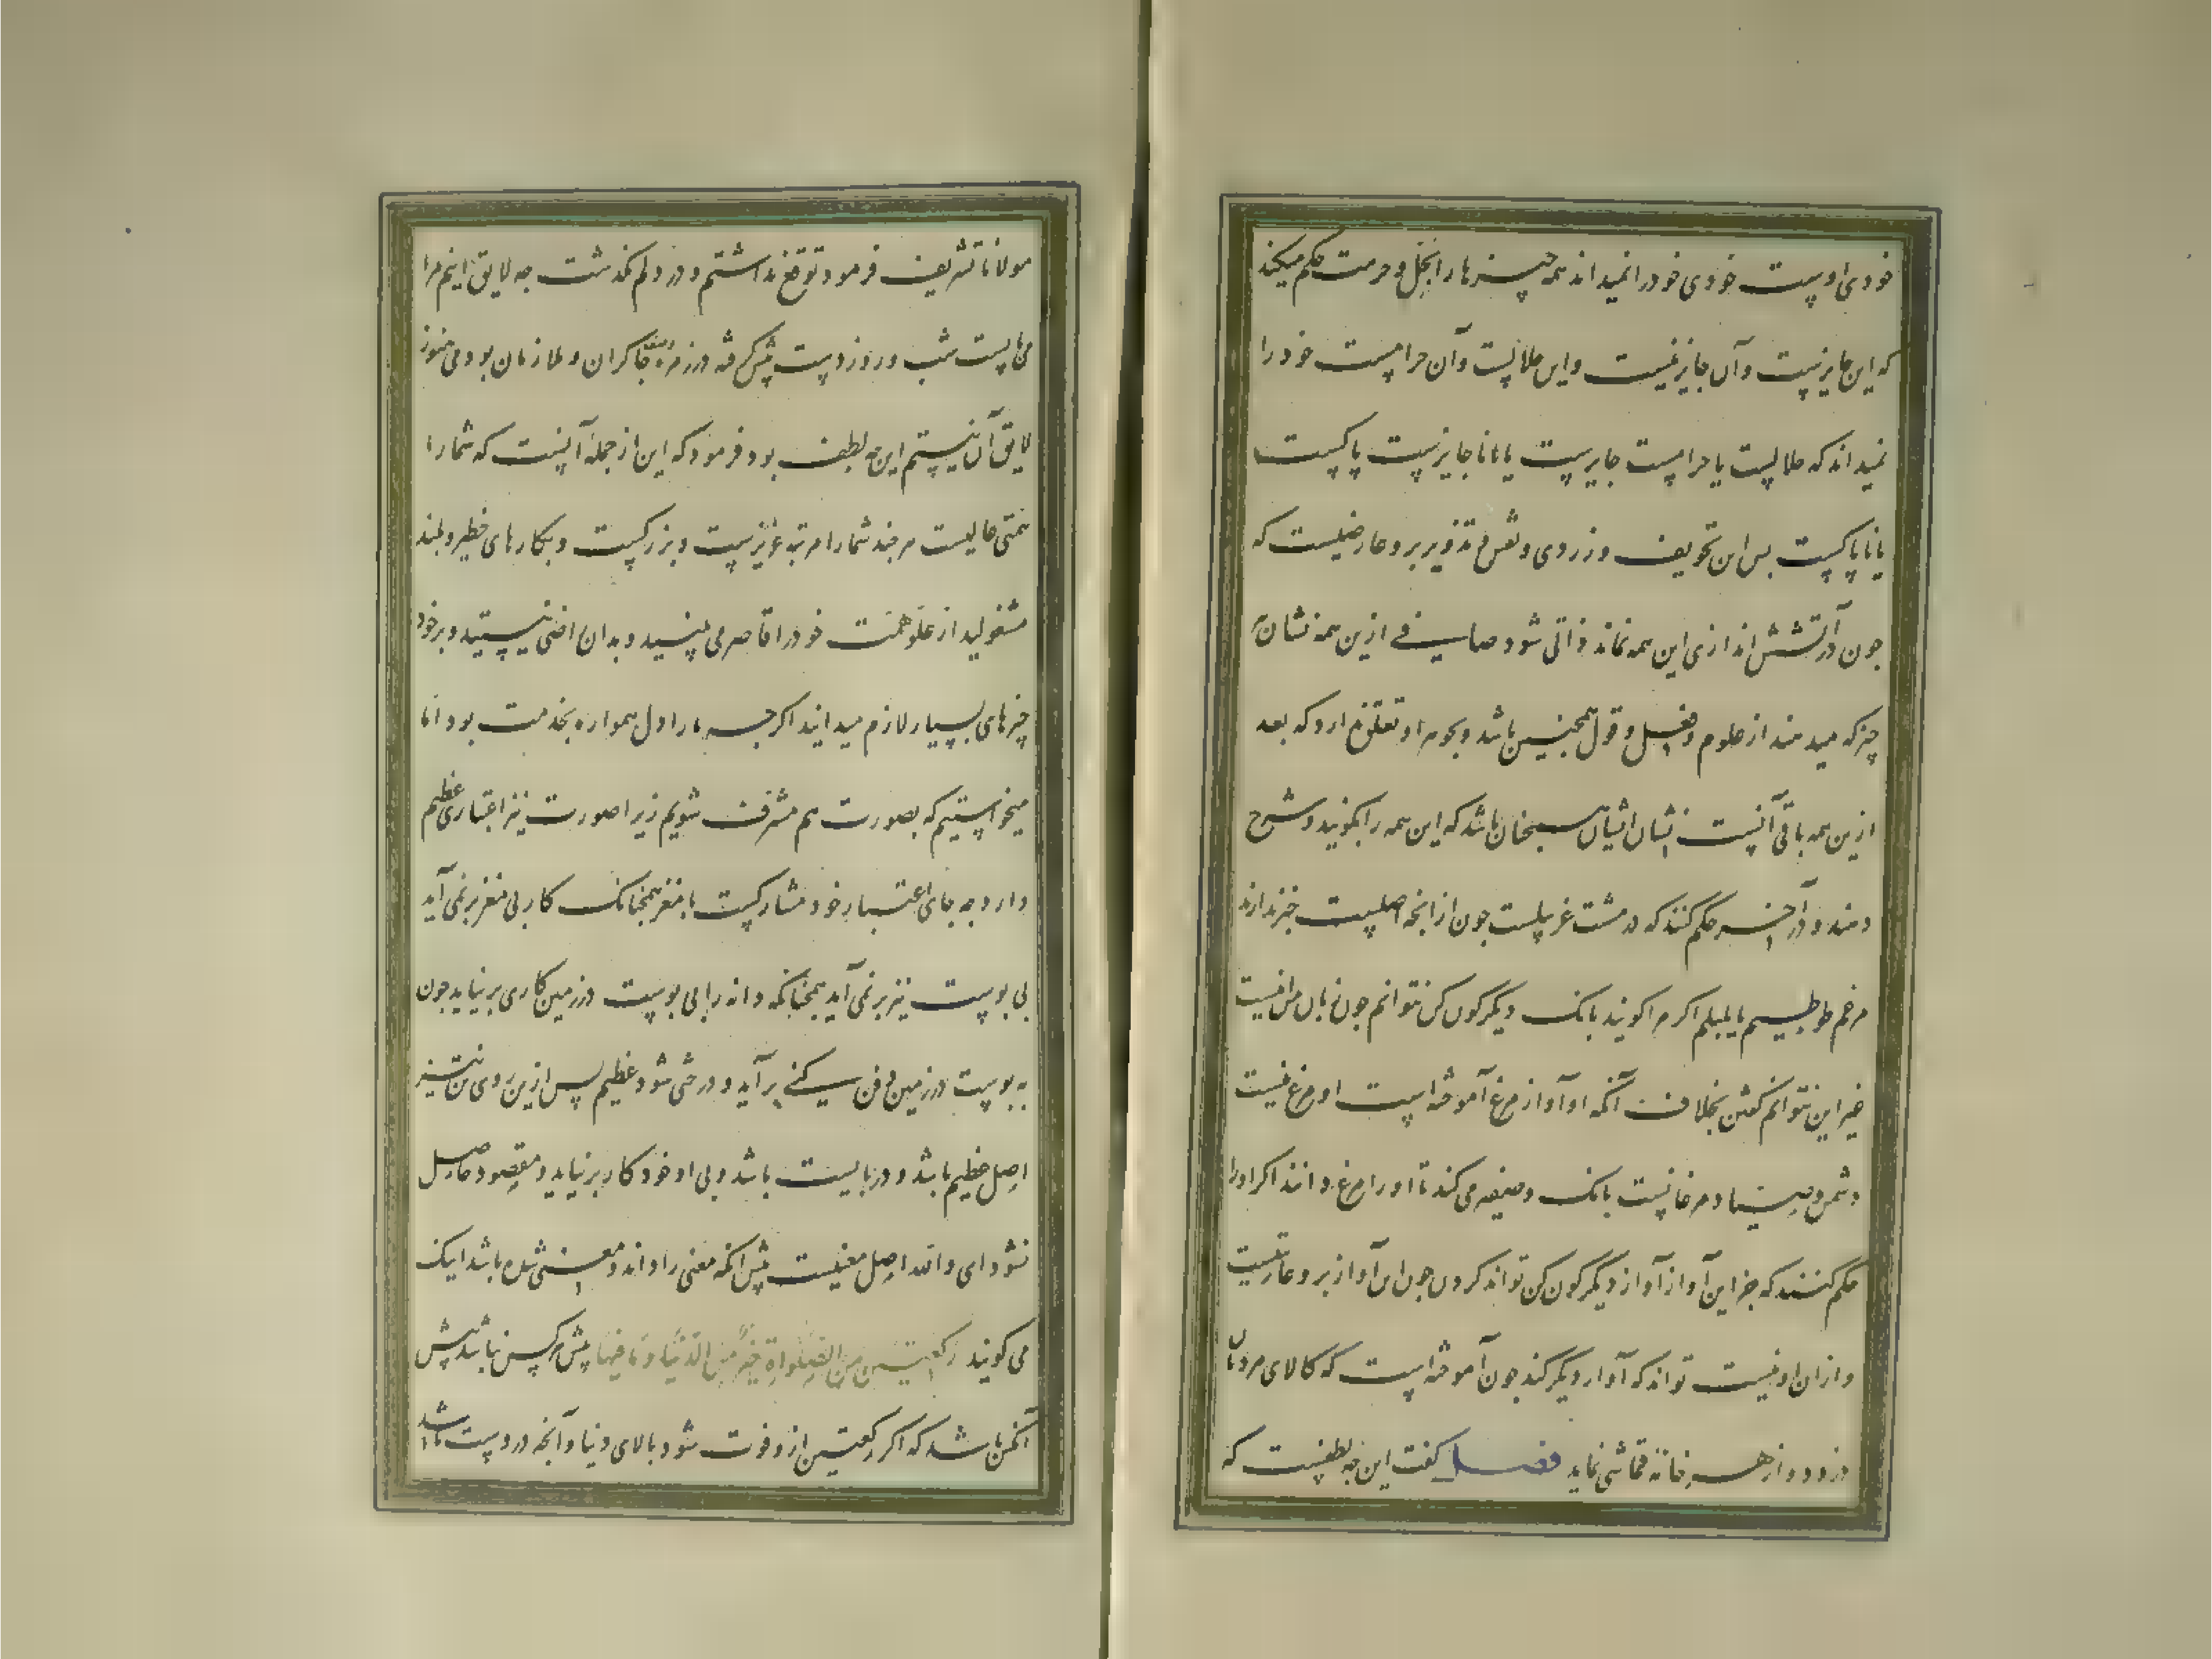 خودی اوست خودی خود را نمیداند همه چیزها را بحل و حرمت حکم میکند
که این جایزنیست و آن جایز نیست و این حلالست و آن حرامست خود را
نمیداند که حلالست یا حرامست جایزست یا ناجایزنیست پاکیست
یا ناپاکیست بس این تجویف و زردی و نقش و تدویر برو عارضیست که
جون در آتشش اندازی این همه نماند ذاتی شود صافی ازین همه نشان
چیز که میدهند از علوم و فعل و قول همچنین باشد و بجوهر او تعلق ندارد که بعد
ازین همه باقی آنست نشان ایشان همچنان باشد که این همه را بگویند و شرح
دهند و در آخر حکم کنند که در مشت غربیلست جون از انچه اصلیست خبر ندارند
مرغم طوطیم یا بلبلم اگر مرا گویند بانک دیگر گون کن نتوانم جون زبان من اینست
غیر این نتوانم گفتن بخلاف آنکه او آواز مرغ آموخته است او مرغ نیست
دشمن و صیاد مرغانست بانک و صفیر می کند تا او را مرغ دانند اگر او را
حکم کنند که جز این آواز آواز دیگر گون کن تواند کردن جون این آواز برو عاریتست
و ازان او نیست تواند که آواز دیگر کند جون آموخته است که کالای مردمان
دزدد و از هر خانه قماشی نماید فصل گفت این چه لطفست که
مولانا تشریف فرمود توقع نداشتم و در دلم نگذشت چه لایق اینم مرا
می بایست شب و روز دست پیش گرفته در زمره چاکران و ملازمان بودمی هنوز
لایق آن نیستم این چه لطف بود فرمود که این از جمله آنست که شما را
همتی عالیست هر چند شما را مرتبه عزیزست و بزرگیست و بکارهای خطیر و بلند
مشغولید از علو همت خود را قاصر می بینید و بدان راضی نیستید و بر خود
چیزهای بسیار لازم میدانید اگر چه ما را دل همواره بخدمت بود اما
میخواستیم که بصورت هم مشرف شویم زیرا صورت نیز اعتباری عظیم
دارد چه جای اعتبار خود مشارکست با مغز همچنانک کار بی مغز بر نمی آید
بی پوست نیز بر نمی آید همچنانکه دانه را بی پوست در زمین کاری بر نیاید جون
به پوست در زمین دفن کنی بر آید و درختی شود عظیم پس ازین روی تن نیز
اصل عظیم باشد و دربایست باشد و بی او خود کار برنیاید و مقصود حاصل
نشود ای والله اصل معنیست پیش آنکه معنی را داند و معنی شده باشد اینک
می گویند رکعتین من الصلواة خیر من الدنیا و ما فیها پیش هر کس نباشد پیش
آنکس باشد که اگر رکعتین ازو فوت شود بالای دنیا و آنچه دروست باشد